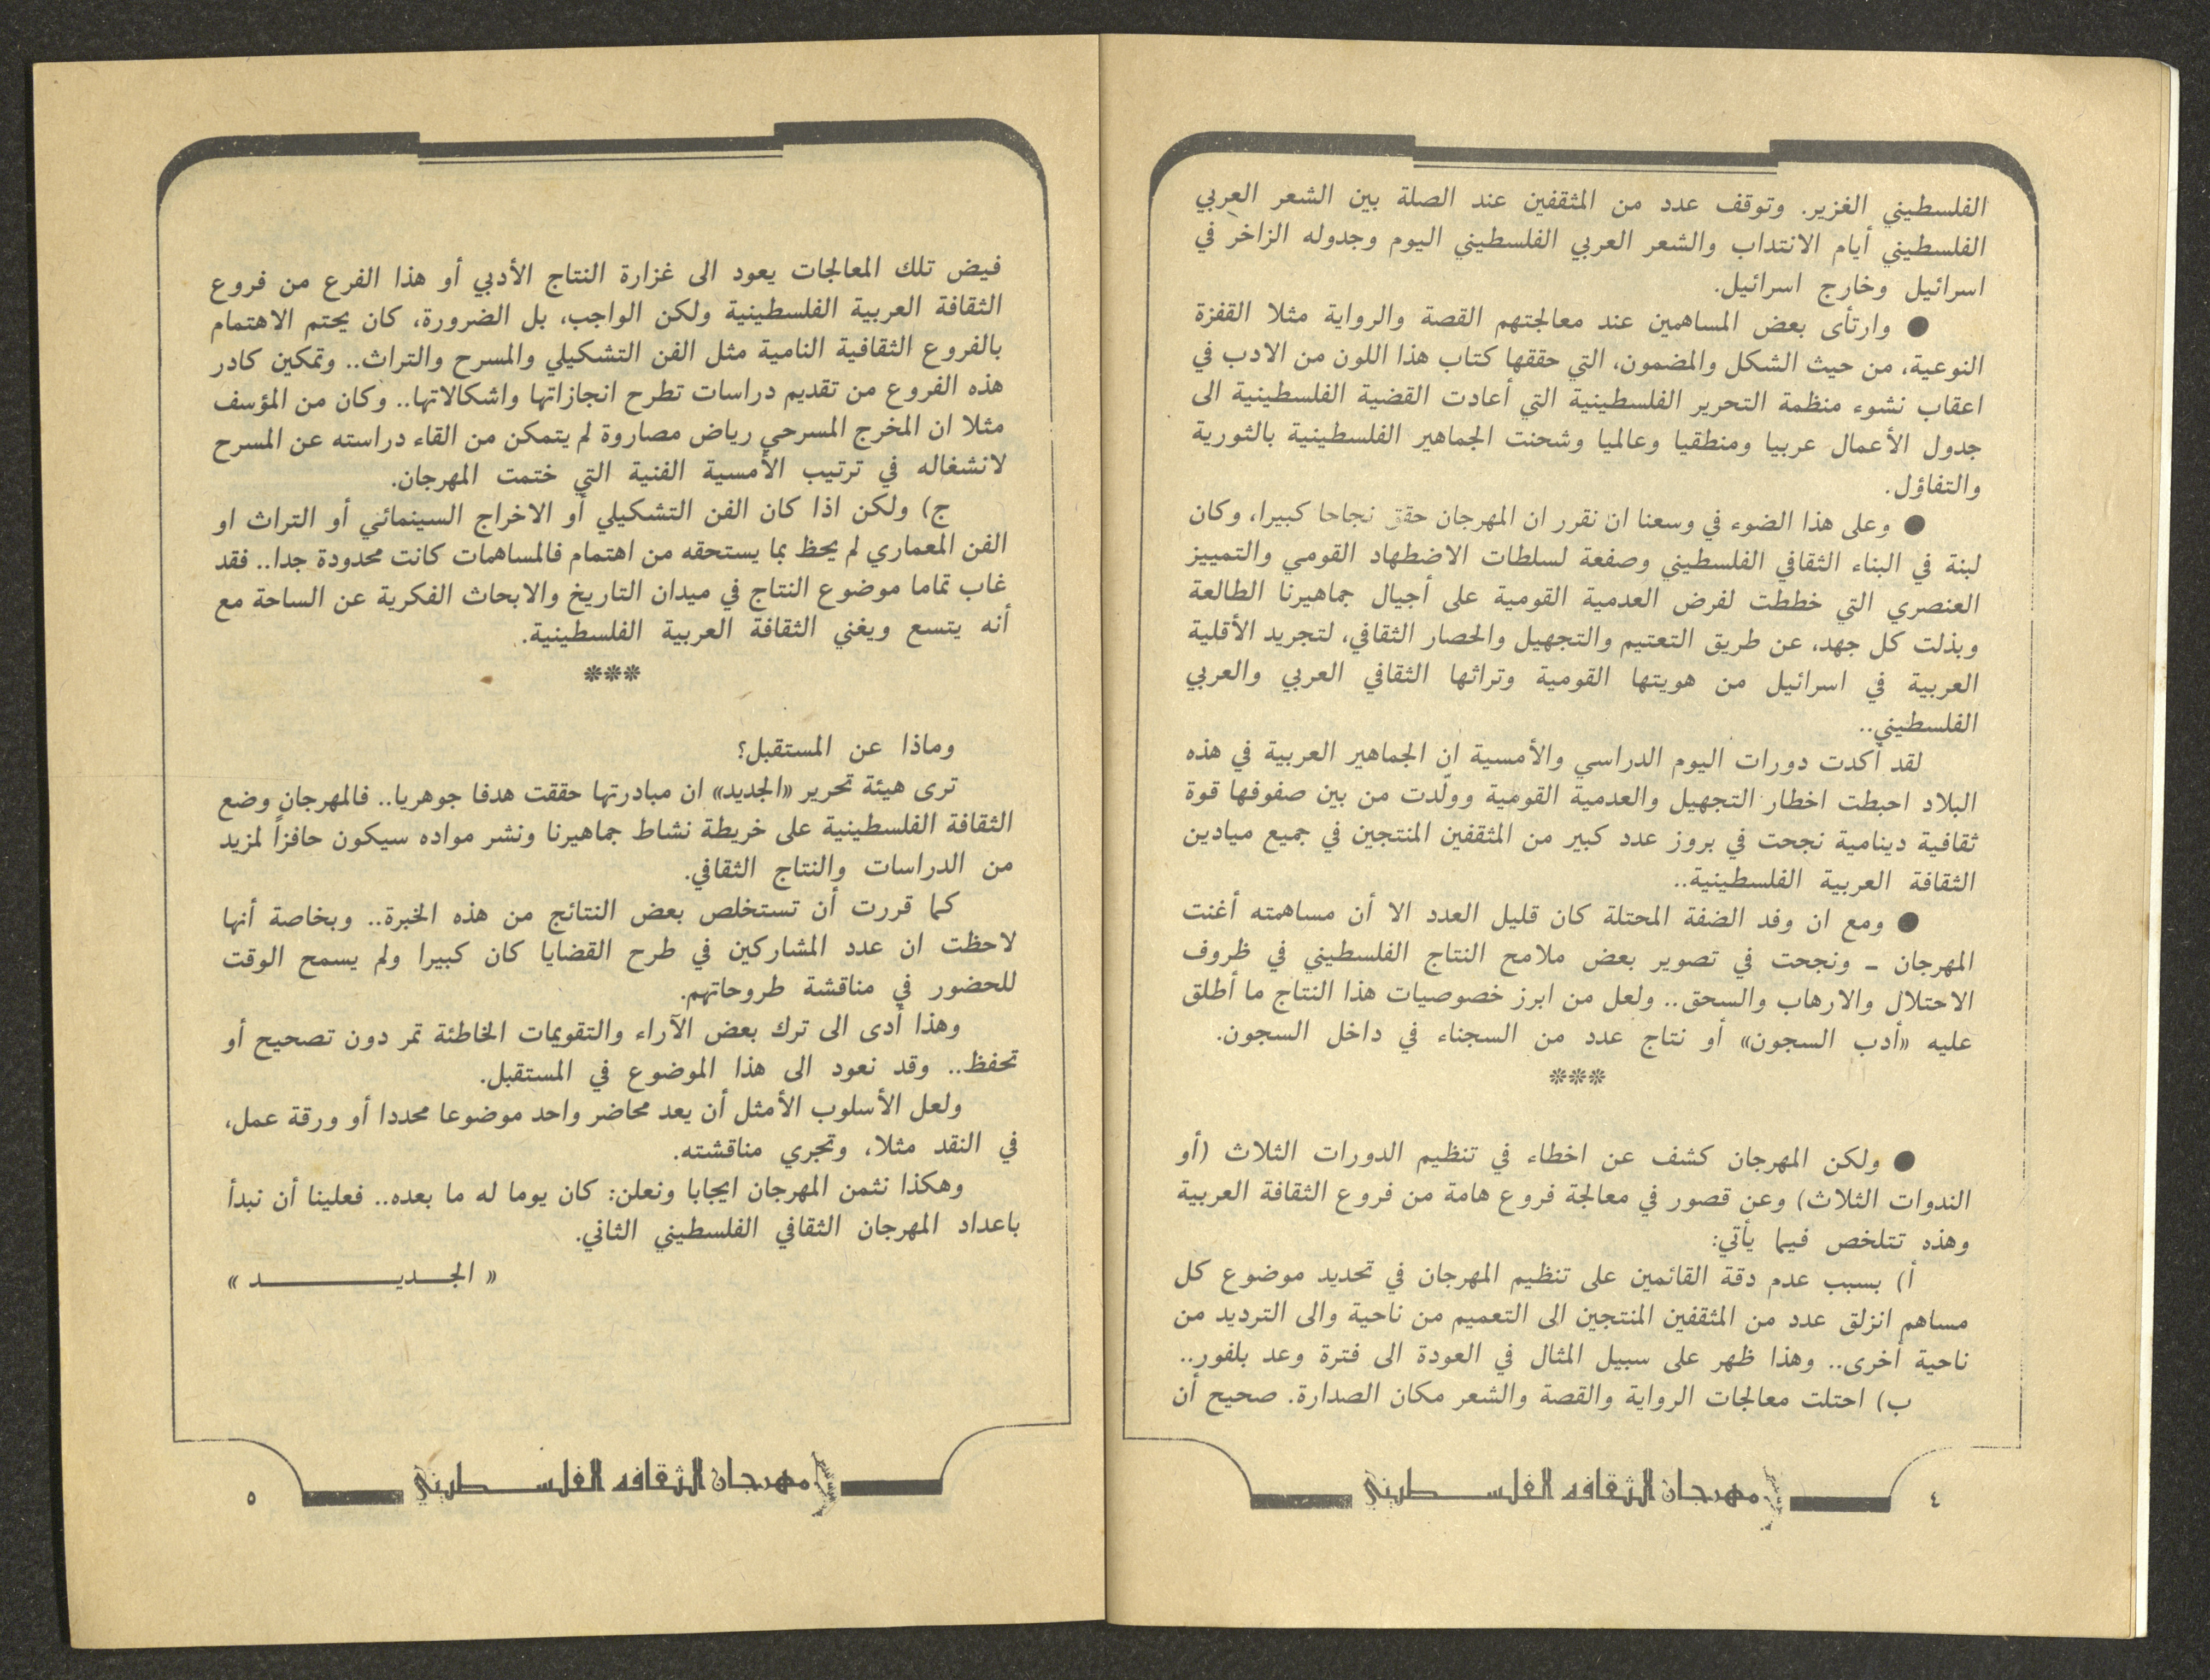 الفلسطيني الغزير. وتوقف عدد من المثقفين عند الصلة بين الشعر العربي
الفلسطيني أيام الانتداب والشعر العربي الفلسطيني اليوم وجدوله الزاخر في
اسرائيل وخارج اسرائيل.
● وارتأى بعض المساهمين عند معالجتهم القصة والرواية مثلا القفزة
النوعية، من حيث الشكل والمضمون، التي حققها كتاب هذا اللون من الادب في
اعقاب نشوء منظمة التحرير الفلسطينية التي أعادت القضية الفلسطينية الى
جدول الأعمال عربيا ومنطقيا وعالميا وشحنت الجماهير الفلسطينية بالثورية
والتفاؤل.
● وعلى هذا الضوء في وسعنا ان نقرر ان المهرجان حقق نجاحا كبيرا، وكان
لبنة في البناء الثقافي الفلسطيني وصفعة لسلطات الاضطهاد القومي والتمييز
العنصري التي خططت لفرض العدمية القومية على أجيال جماهيرنا الطالعة
وبذلت كل جهد، عن طريق التعتيم والتجهيل والحصار الثقافي، لتجريد الأقلية
العربية في اسرائيل من هويتها القومية وتراثها الثقافي العربي والعربي
الفلسطيني..
لقد أكدت دورات اليوم الدراسي والأمسية ان الجماهير العربية في هذه
البلاد احبطت اخطار التجهيل والعدمية القومية وولّدت من بين صفوفها قوة
ثقافية دينامية نجحت في بروز عدد كبير من المثقفين المنتجين في جميع ميادين
الثقافة العربية الفلسطينية..
● ومع ان وفد الضفة المحتلة كان قليل العدد الا أن مساهمته أغنت
المهرجان - ونجحت في تصوير بعض ملامح النتاج الفلسطيني في ظروف
الاحتلال والارهاب والسحق.. ولعل من ابرز خصوصيات هذا النتاج ما أطلق
عليه «أدب السجون» أو نتاج عدد من السجناء في داخل السجون.
***
● ولكن المهرجان كشف عن اخطاء في تنظيم الدورات الثلاث (أو
الندوات الثلاث) وعن قصور في معالجة فروع هامة من فروع الثقافة العربية
وهذه تتلخص فيما يأتي:
أ) بسبب عدم دقة القائمين على تنظيم المهرجان في تحديد موضوع كل
مساهم انزلق عدد من المثقفين المنتجين الى التعميم من ناحية والى الترديد من
ناحية أخرى.. وهذا ظهر على سبيل المثال في العودة الى فترة وعد بلفور..
ب) احتلت معالجات الرواية والقصة والشعر مكان الصدارة. صحيح أن
مهرجان الثقافه الفلسطيني
٤
فيض تلك المعالجات يعود الى غزارة النتاج الأدبي أو هذا الفرع من فروع
الثقافة العربية الفلسطينية ولكن الواجب، بل الضرورة، كان يحتم الاهتمام
بالفروع الثقافية النامية مثل الفن التشكيلي والمسرح والتراث.. وتمكين كادر
هذه الفروع من تقديم دراسات تطرح انجازاتها واشكالاتها.. وكان من المؤسف
مثلا ان المخرج المسرحي رياض مصاروة لم يتمكن من القاء دراسته عن المسرح
لانشغاله في ترتيب الأمسية الفنية التي ختمت المهرجان.
ج) ولكن اذا كان الفن التشكيلي أو الاخراج السينمائي أو التراث او
الفن المعماري لم يحظ بما يستحقه من اهتمام فالمساهمات كانت محدودة جدا.. فقد
غاب تماما موضوع النتاج في ميدان التاريخ والابحاث الفكرية عن الساحة مع
أنه يتسع ويغني الثقافة العربية الفلسطينية.
***
وماذا عن المستقبل؟
ترى هيئة تحرير «الجديد» ان مبادرتها حققت هدفا جوهريا.. فالمهرجان وضع
الثقافة الفلسطينية على خريطة نشاط جماهيرنا ونشر مواده سيكون حافزاً لمزيد
من الدراسات والنتاج الثقافي.
كما قررت أن تستخلص بعض النتائج من هذه الخبرة.. وبخاصة أنها
لاحظت ان عدد المشاركين في طرح القضايا كان كبيرا ولم يسمح الوقت
للحضور في مناقشة طروحاتهم.
وهذا أدى الى ترك بعض الآراء والتقويمات الخاطئة تمر دون تصحيح أو
تحفظ.. وقد نعود الى هذا الموضوع في المستقبل.
ولعل الأسلوب الأمثل أن يعد محاضر واحد موضوعا محددا أو ورقة عمل،
في النقد مثلا، وتجري مناقشته.
وهكذا نثمن المهرجان ايجابا ونعلن: كان يوما له ما بعده.. فعلينا أن نبدأ
باعداد المهرجان الثقافي الفلسطيني الثاني.
« الجـديـــــــد »
مهرجان الثقافه الفلسطيني
٥